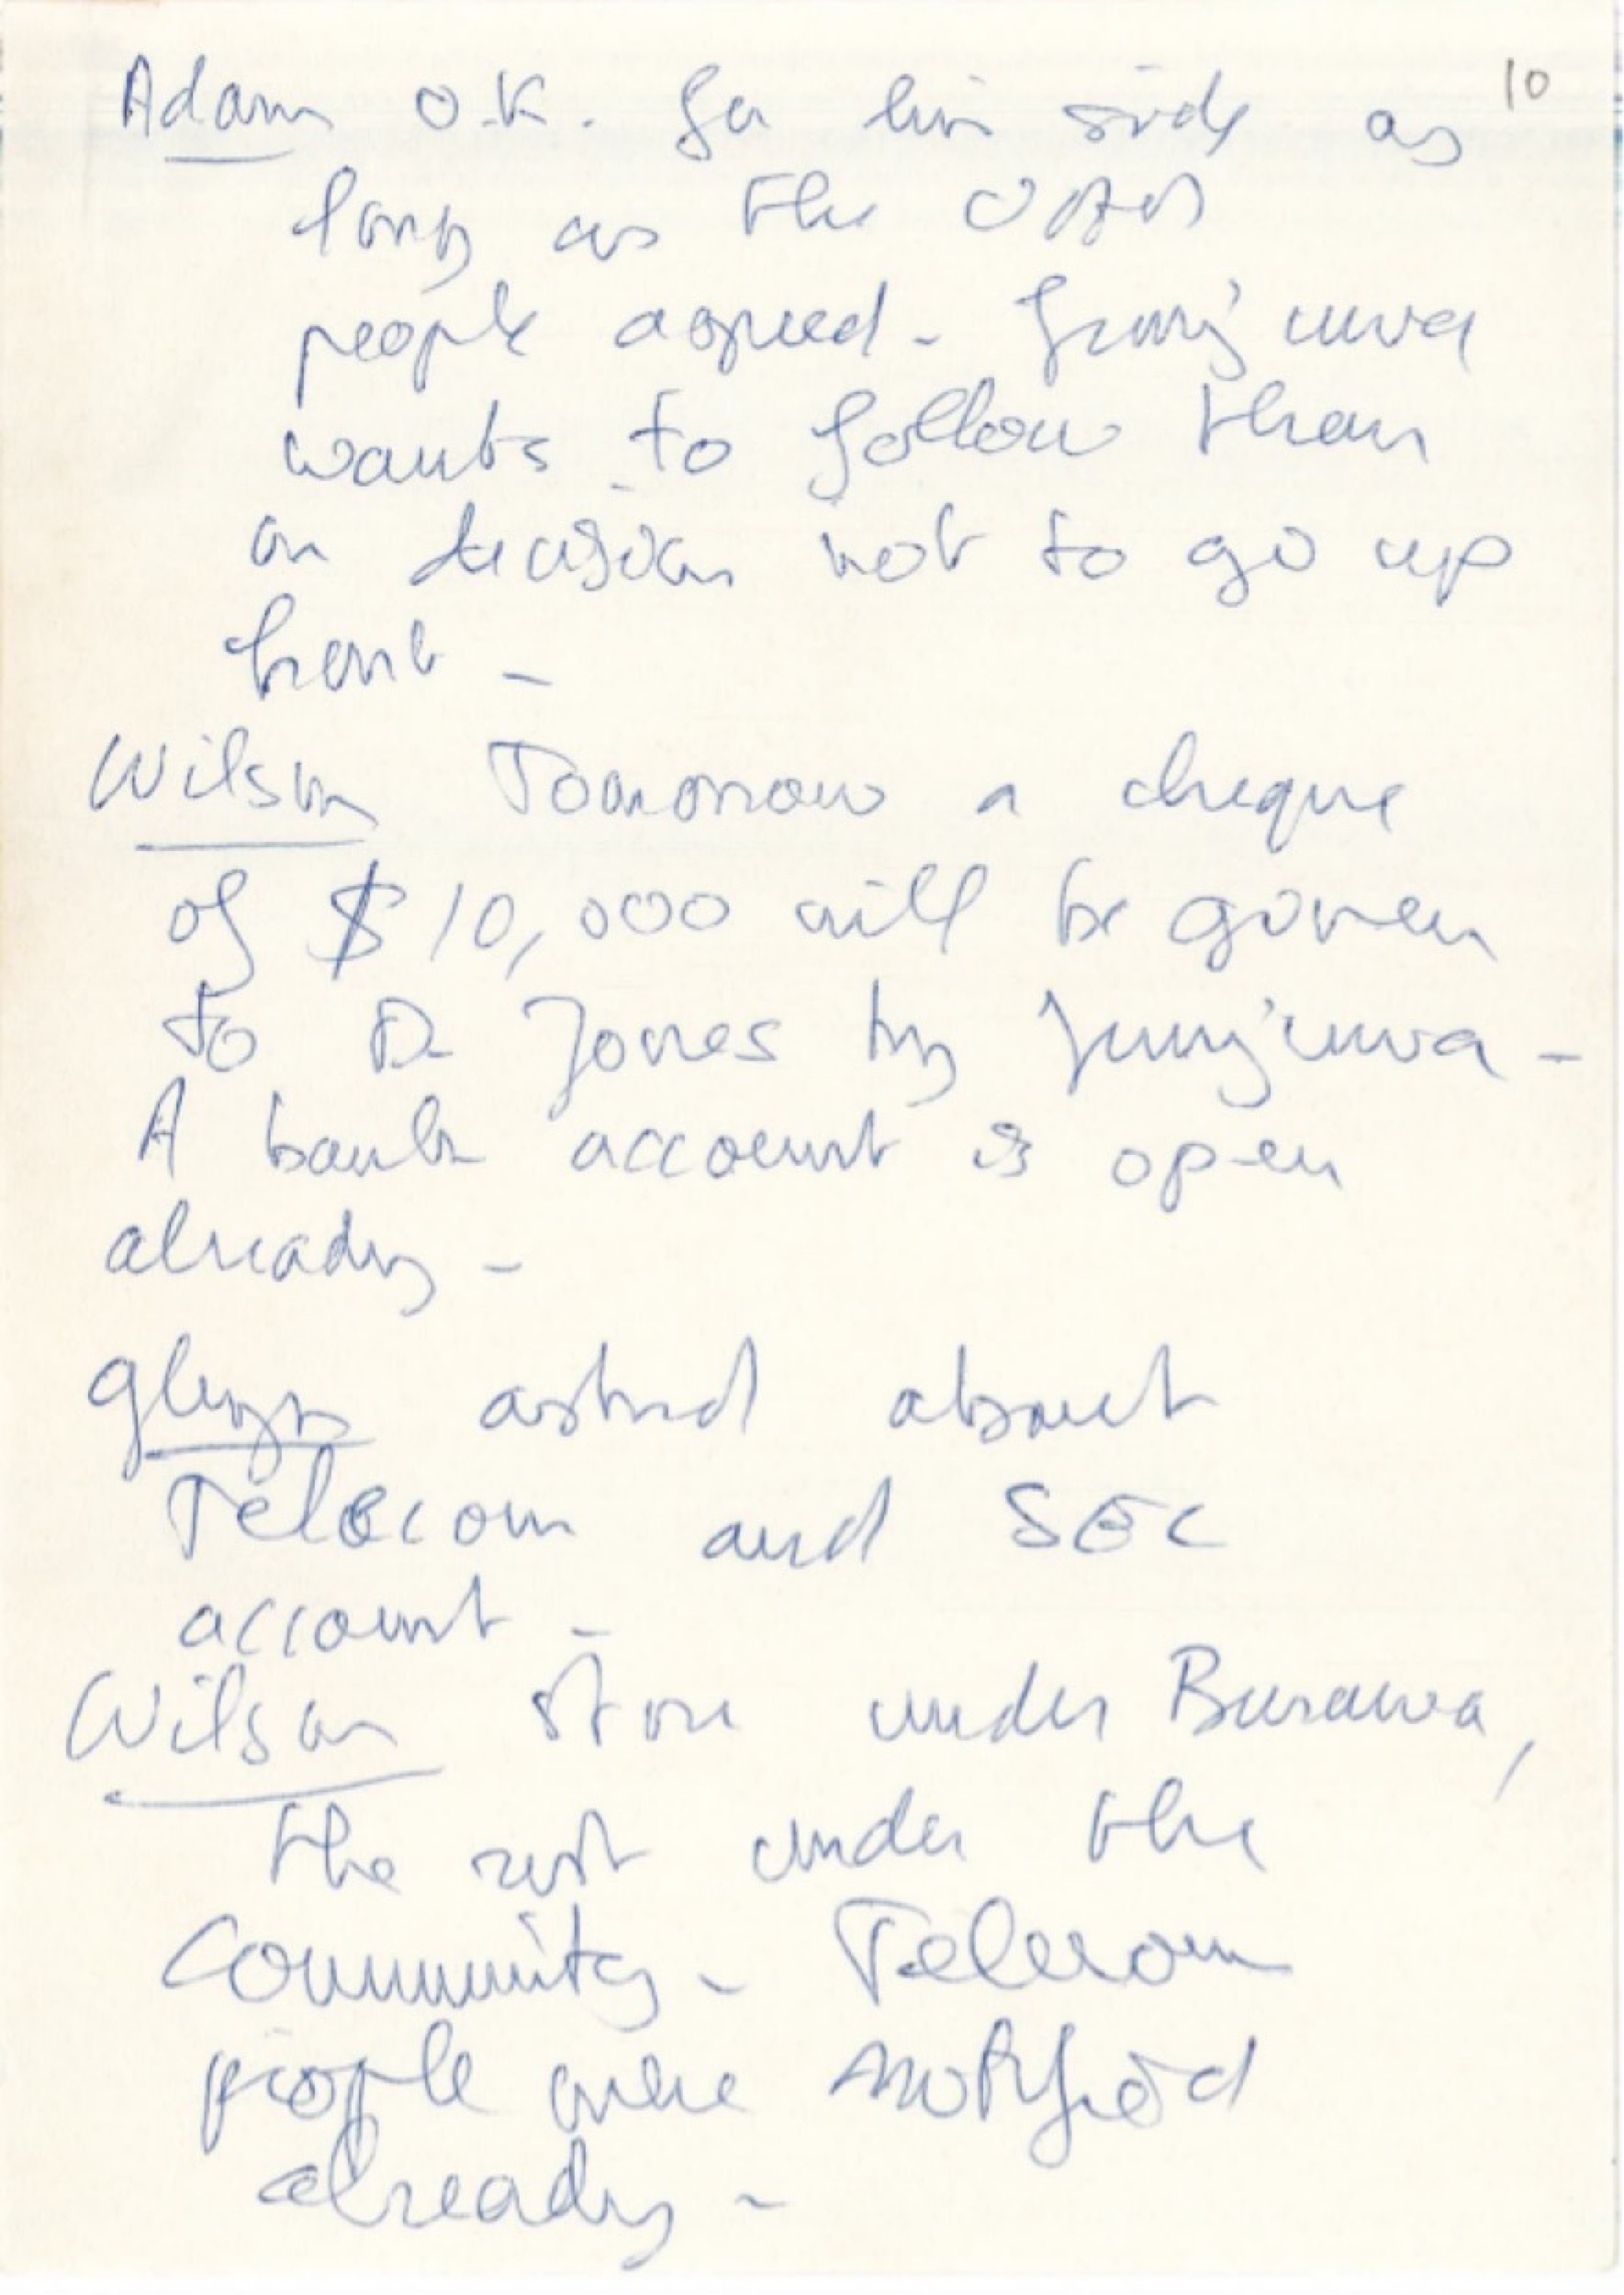 10
Adam O.K. for his side as
long as the other
people agreed - Junj'uwa
wants to follow them
on decision not to go up
front -
Wilson Tomorrow a cheque
of $10,000 will be given
to D. Jones by Junj'uwa -
A bank account is open
already -
Glenys asked about
Telecom and SEC
account -
Wilson store under Burawa,
the rest under the
Community - Telecom
people were notified
already -